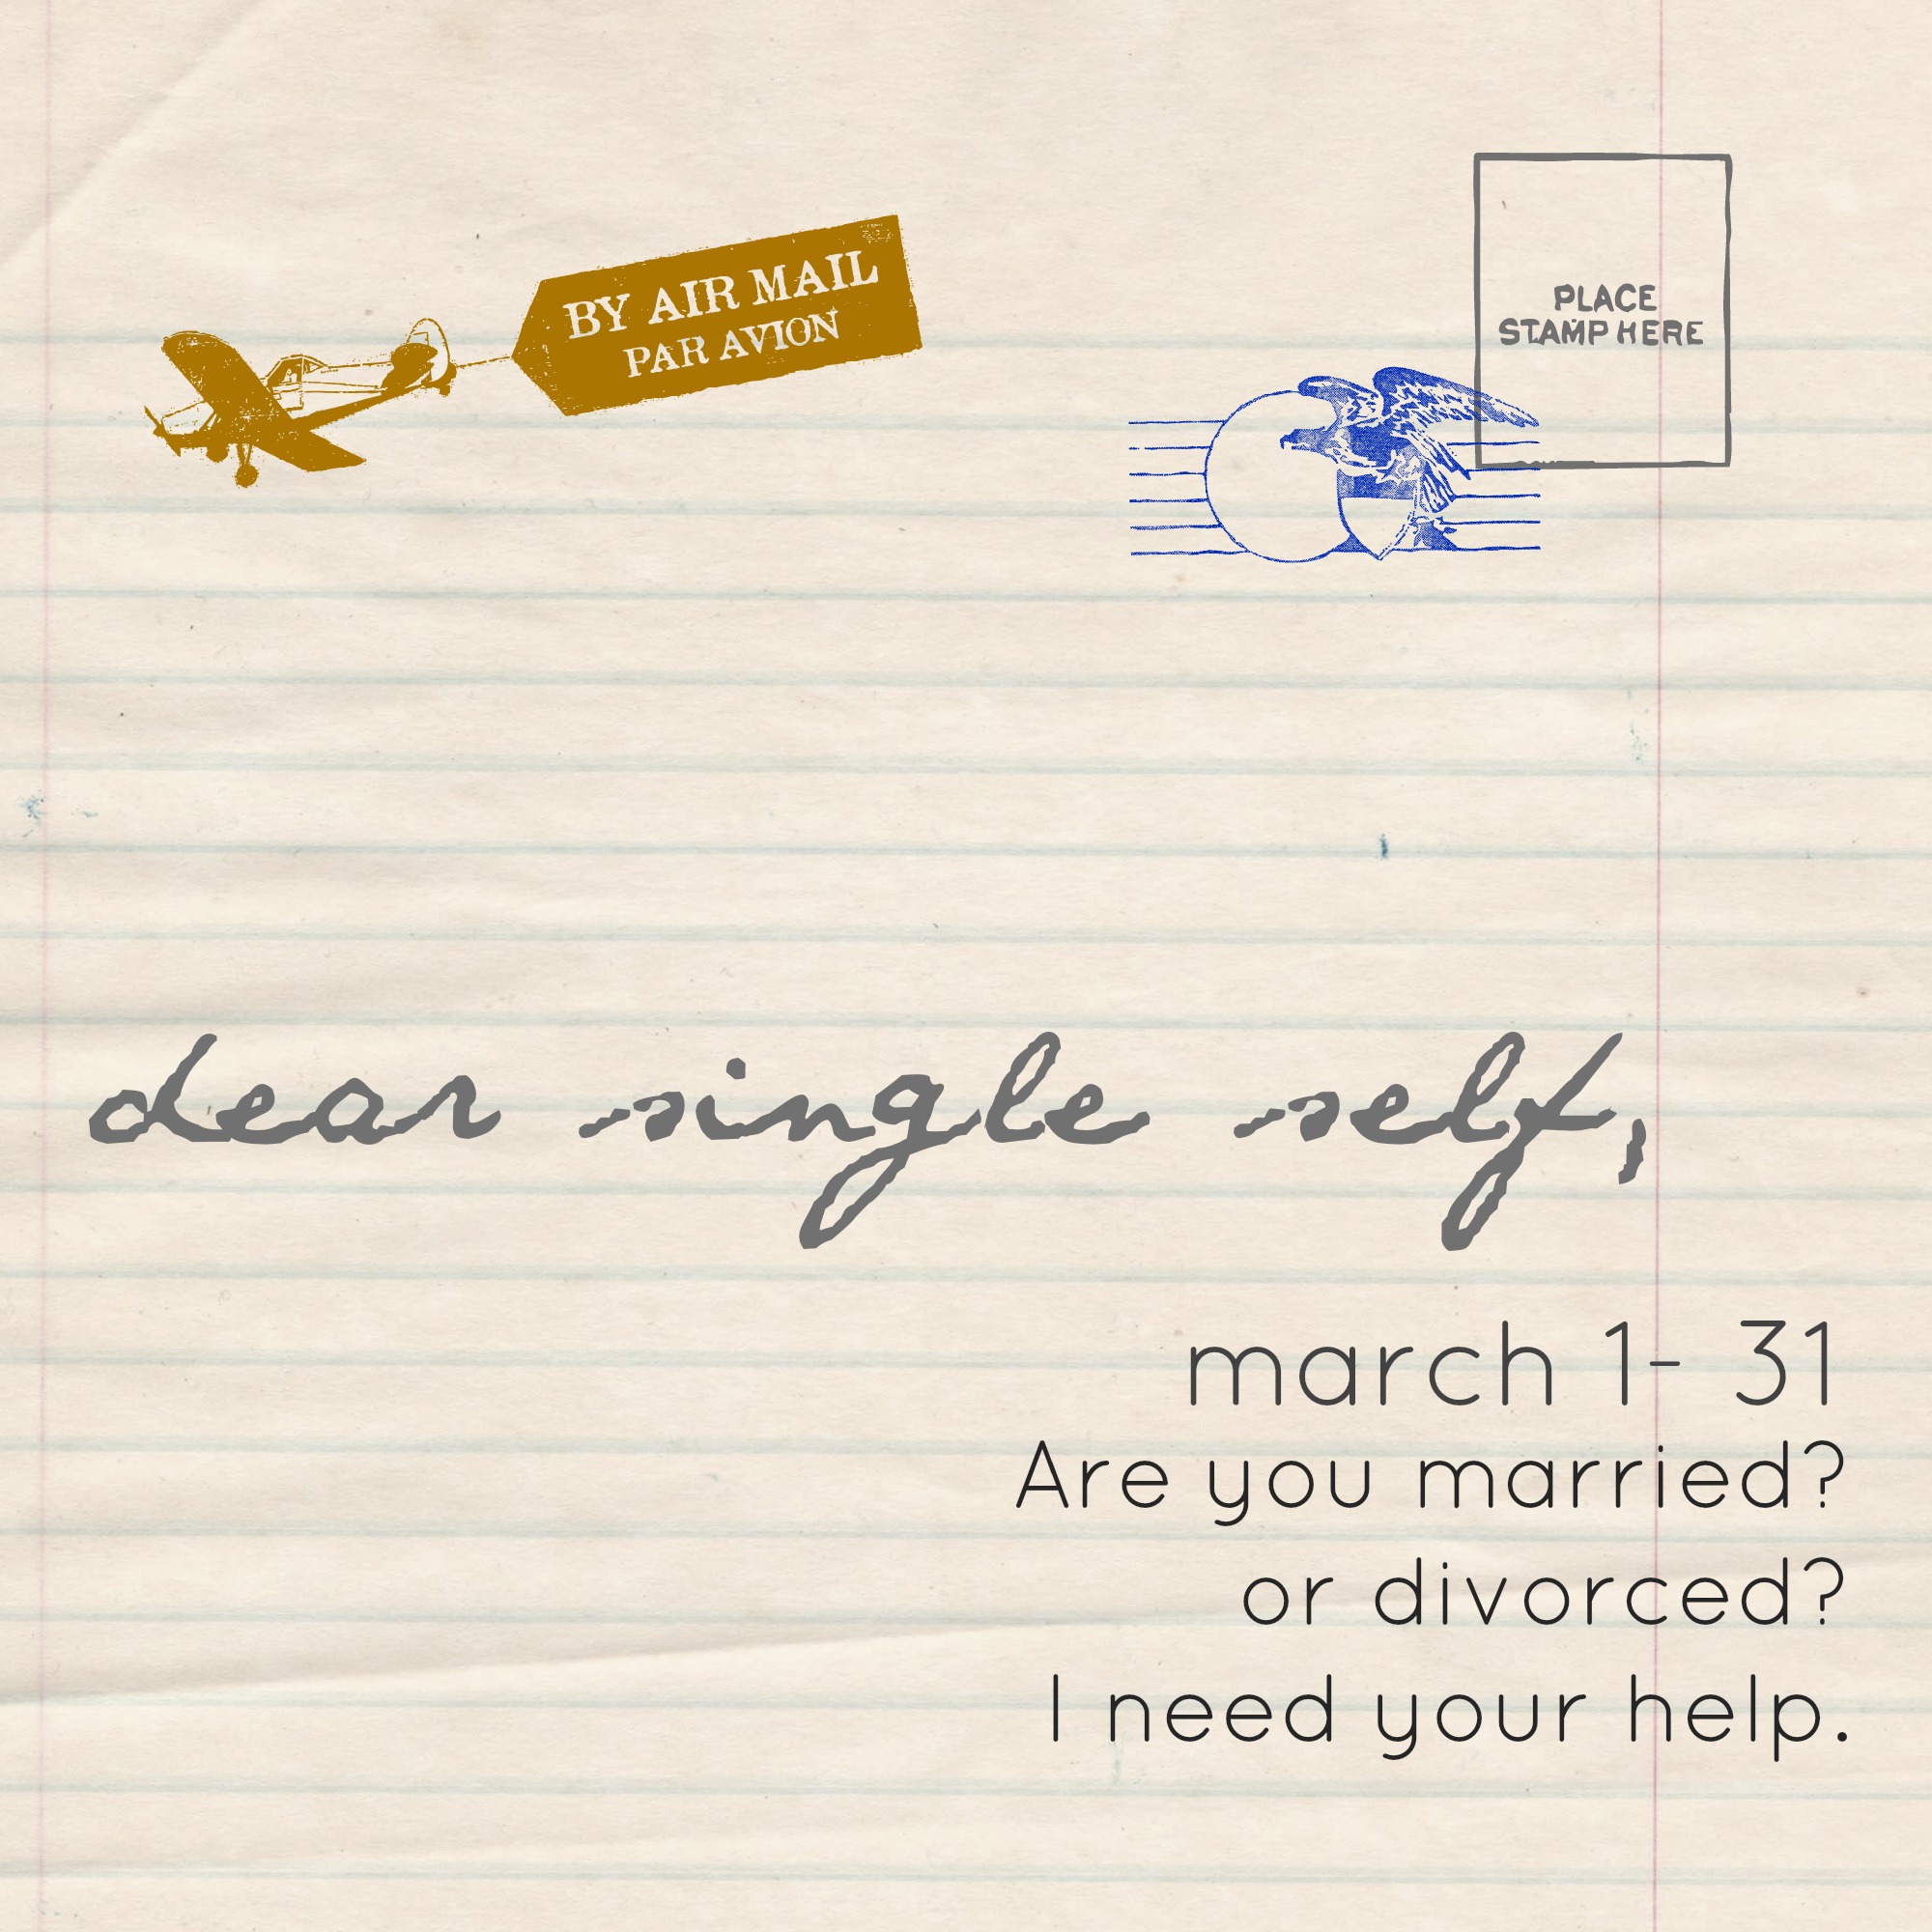 BY AIR MAIL
PAR AVION
PLACE
STAMP HERE
dear single self,
march 1- 31
Are you married?
or divorced?
I need your help.